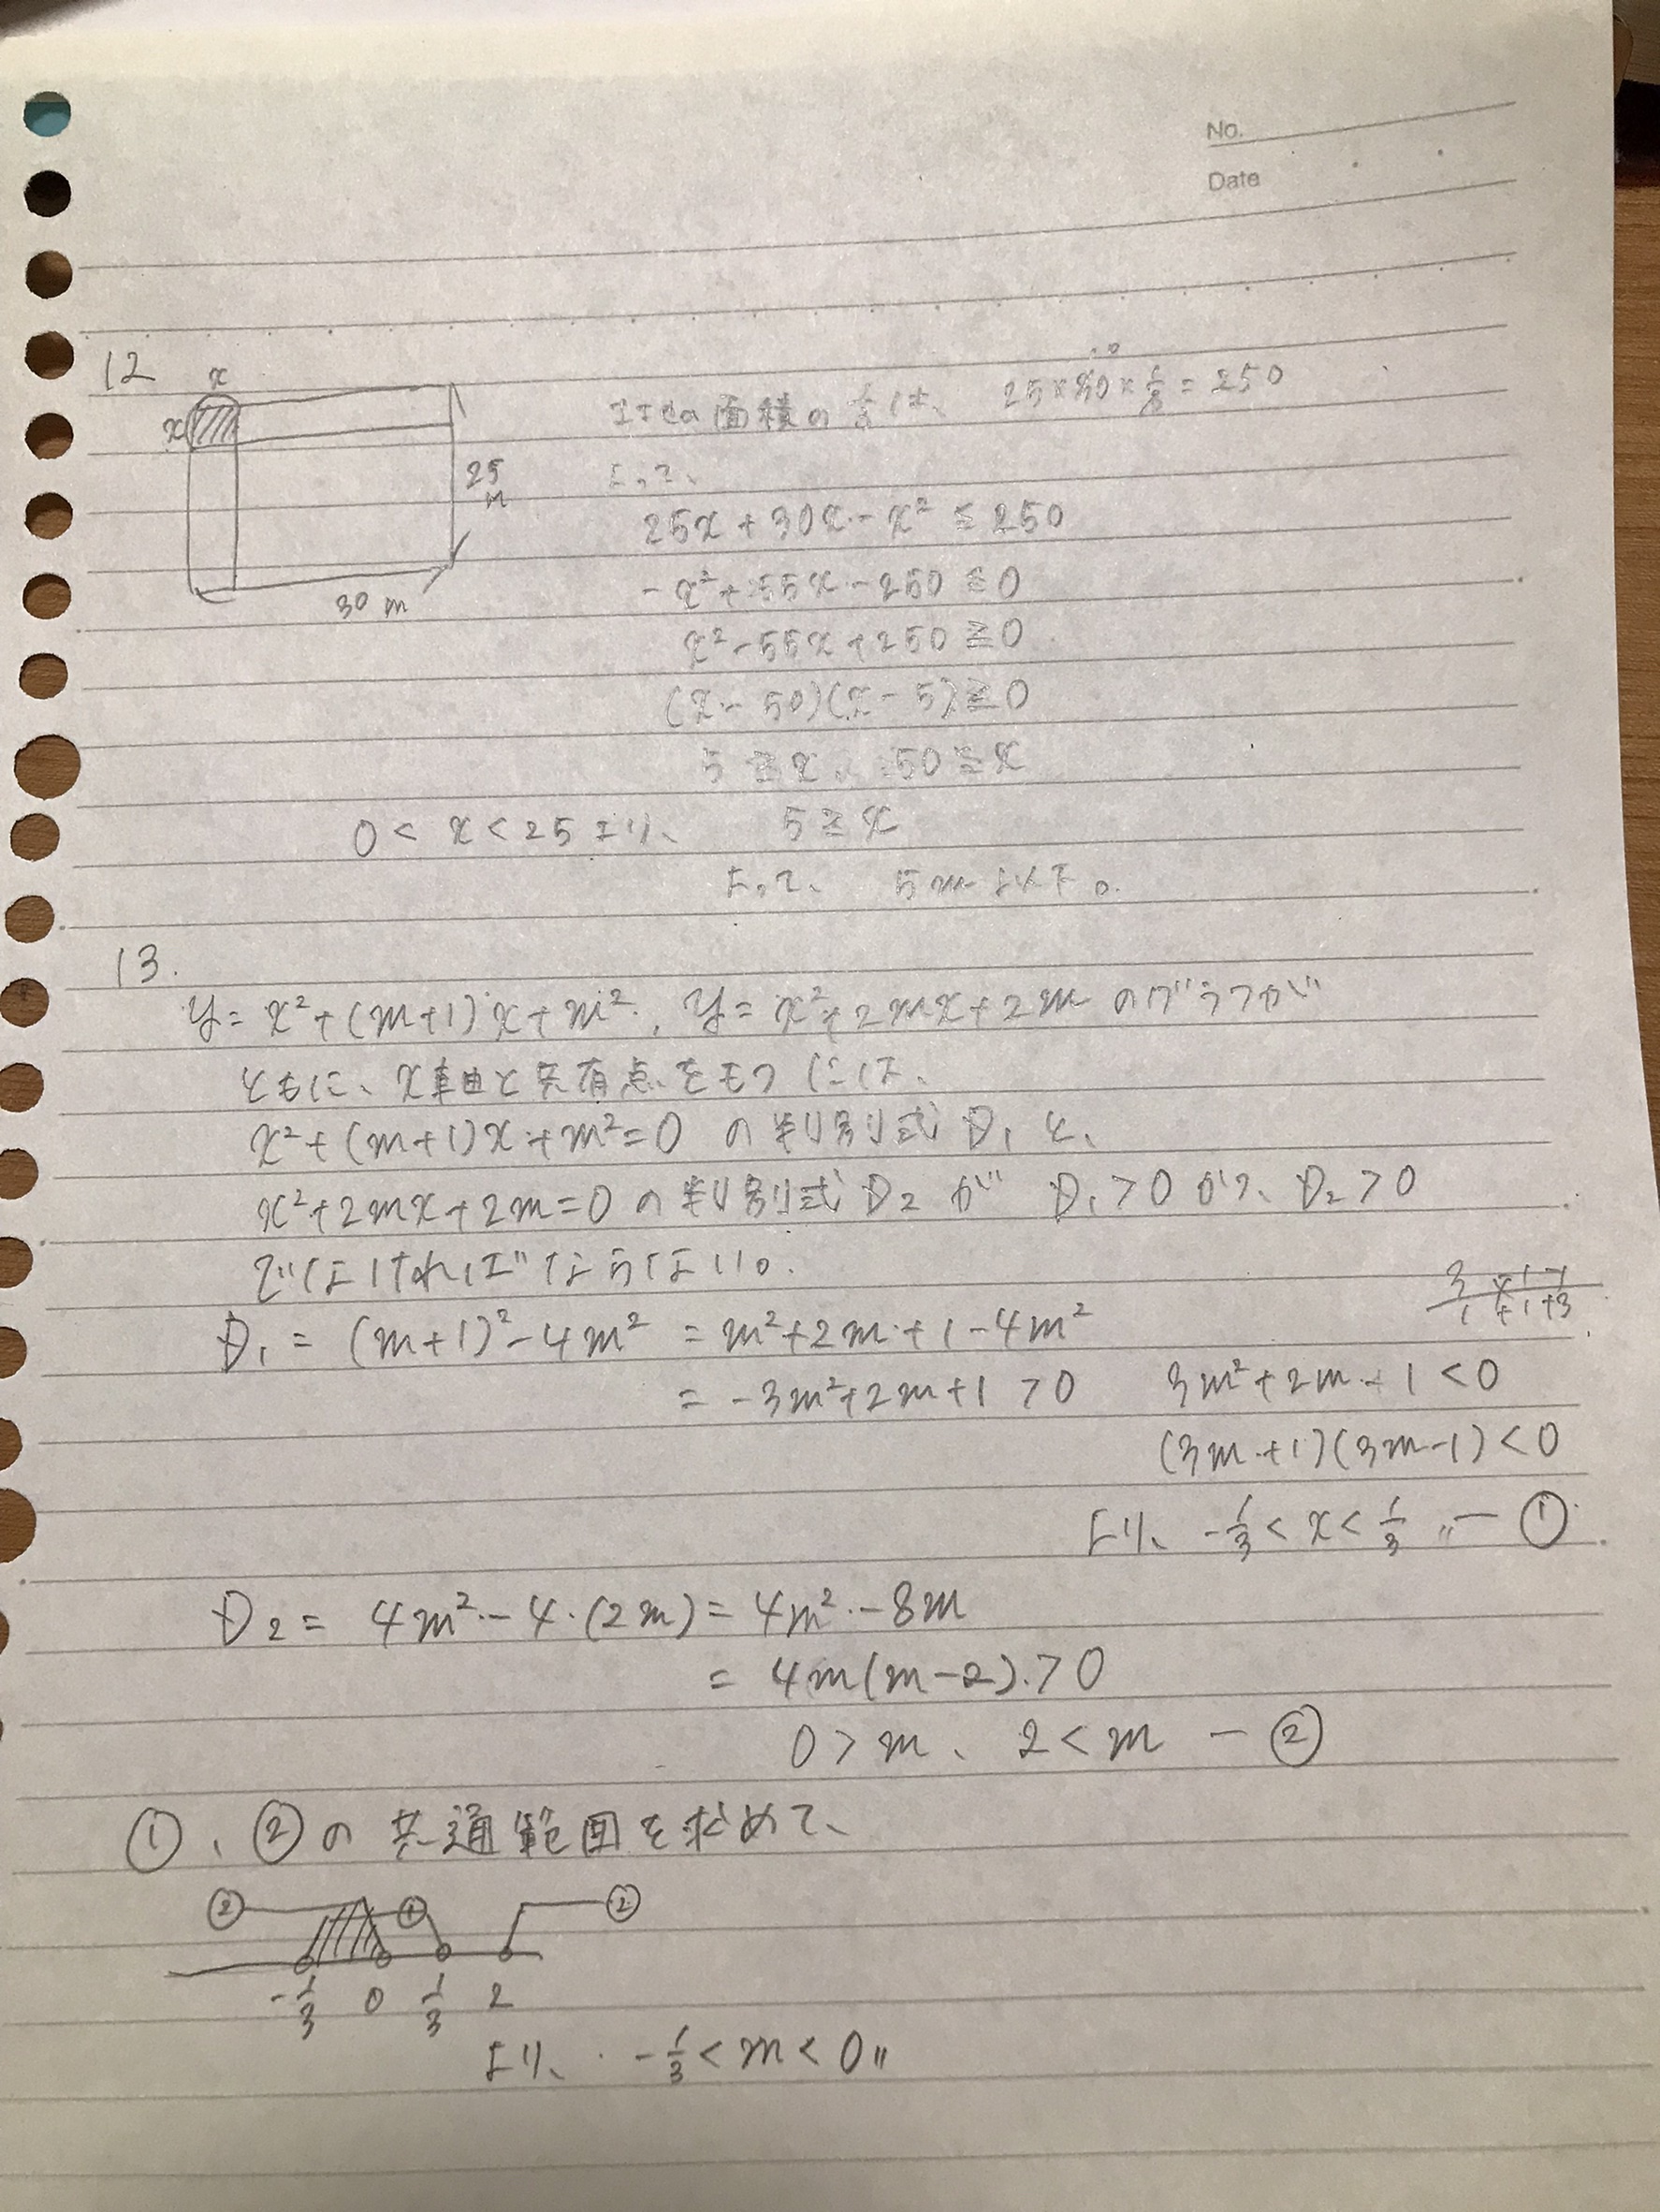 No.
Date
12
x
x
25
m
30 m
面積の 1/3 は、 25×30×1/3 = 250
10
よって、
25x + 30x - x² ≦ 250
-x² + 55x - 250 ≦ 0
x² - 55x + 250 ≧ 0
(x - 50)(x - 5) ≧ 0
5 ≧ x 、 50 ≦ x
0 < x < 25 より、 5 ≧ x
よって、 5m 以下。
13.
y = x² + (m+1)x + m² , y = x² + 2mx + 2m のグラフが
ともに、x軸と共有点をもつには、
x² + (m+1)x + m² = 0 の判別式 D₁ と、
x² + 2mx + 2m = 0 の判別式 D₂ が D₁ > 0 かつ、D₂ > 0
でなければならない。
D₁ = (m+1)² - 4m² = m² + 2m + 1 - 4m²
= -3m² + 2m + 1 > 0 3m² + 2m + 1 < 0
(3m+1)(3m-1) < 0
より、 -1/3 < x < 1/3 〃 ー ①
D₂ = 4m² - 4・(2m) = 4m² - 8m
= 4m(m-2) > 0
0 > m 、 2 < m ー ②
①、②の共通範囲を求めて、
② ① ②
-1/3 0 1/3 2
より、 -1/3 < m < 0 〃